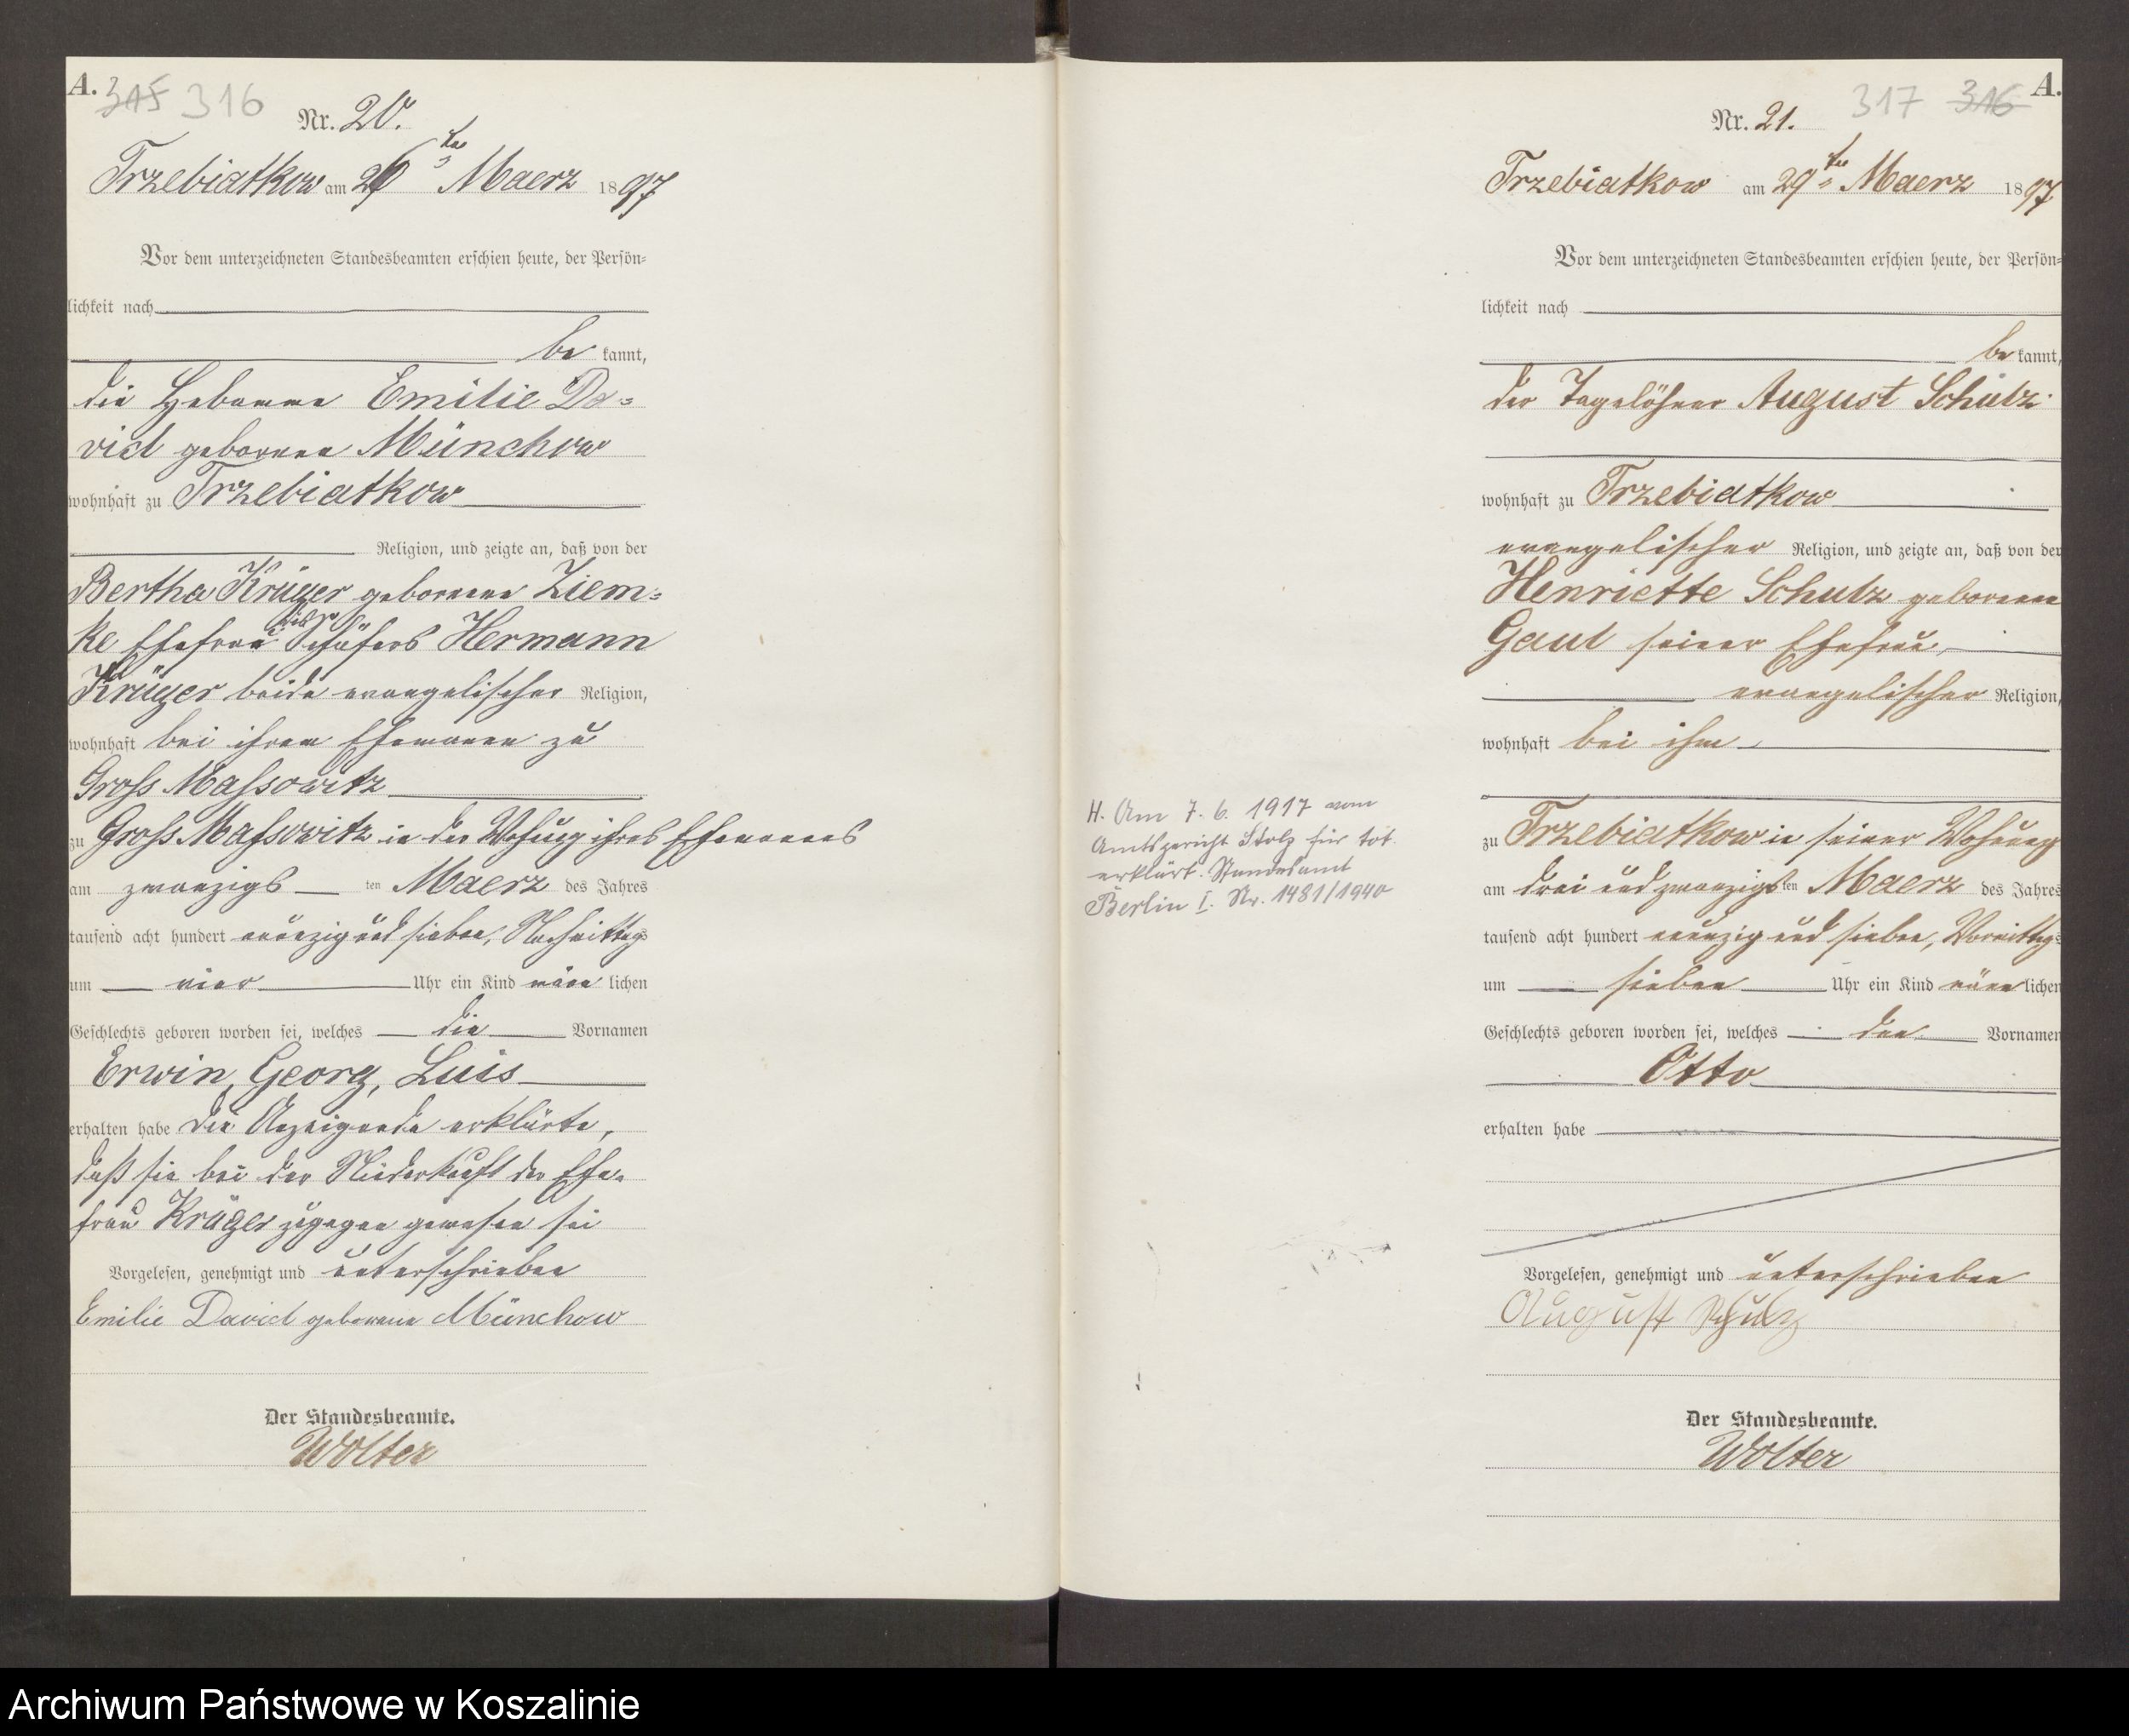 A.
315 316
Nr. 20.
Trzebiatkow am 26ten Maerz 1897
Vor dem unterzeichneten Standesbeamten erschien heute, der Persön-
lichkeit nach
be kannt,
die Hebamme Emilie Da-
vid geborene Münchow
wohnhaft zu Trzebiatkow
Religion, und zeigte an, daß von der
Bertha Krüger geborene Ziem-
ke Ehefrau des Schäfers Hermann
Krüger beide evangelischer Religion,
wohnhaft bei ihrem Ehemanne zu
Gross Massowitz
zu Gross Massowitz in der Wohnung ihres Ehemannes
am zwanzigs ten Maerz des Jahres
tausend acht hundert neunzig und sieben, Nachmittags
um vier Uhr ein Kind männ lichen
Geschlechts geboren worden sei, welches die Vornamen
Erwin, Georg, Luis
erhalten habe Die Anzeigende erklärte,
daß sie bei der Niederkunft der Ehe-
frau Krüger zugegen gewesen sei
Vorgelesen, genehmigt und unterschrieben
Emilie David geborene Münchow
Der Standesbeamte.
Wolter
317 316
A.
Nr. 21.
Trzebiatkow am 29ten Maerz 1897
Vor dem unterzeichneten Standesbeamten erschien heute, der Persön-
lichkeit nach
be kannt,
der Tagelöhner August Schulz
wohnhaft zu Trzebiatkow
evangelischer Religion, und zeigte an, daß von der
Henriette Schulz geborene
Gaul seiner Ehefrau,
evangelischer Religion,
wohnhaft bei ihm
zu Trzebiatkow in seiner Wohnung
am drei und zwanzigs ten Maerz des Jahres
tausend acht hundert neunzig und sieben, Vormittags
um sieben Uhr ein Kind männ lichen
Geschlechts geboren worden sei, welches den Vornamen
Otto
erhalten habe
Vorgelesen, genehmigt und unterschrieben
August Schulz
Der Standesbeamte.
Wolter
H. Am 7. 6. 1917 vom
Amtsgericht Stolp für tot
erklärt. Standesamt
Berlin I. Nr. 1481/1940
Archiwum Państwowe w Koszalinie